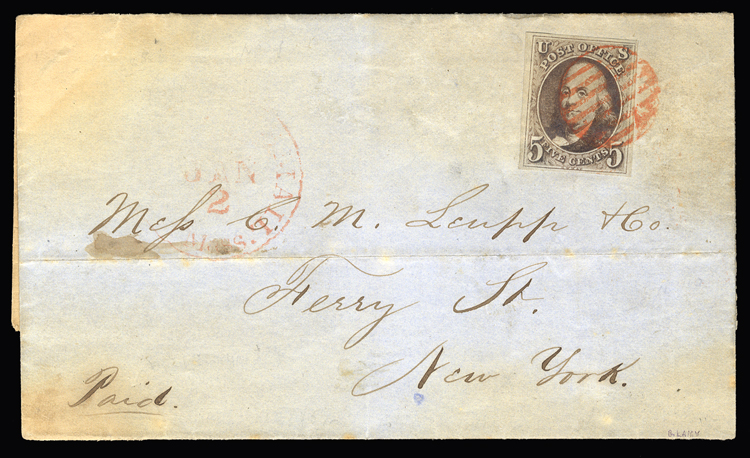 U S
POST OFFICE
5 FIVE CENTS 5
JAN
2
Mess C. M. Leupp & Co.
Ferry St.
New York.
Paid.